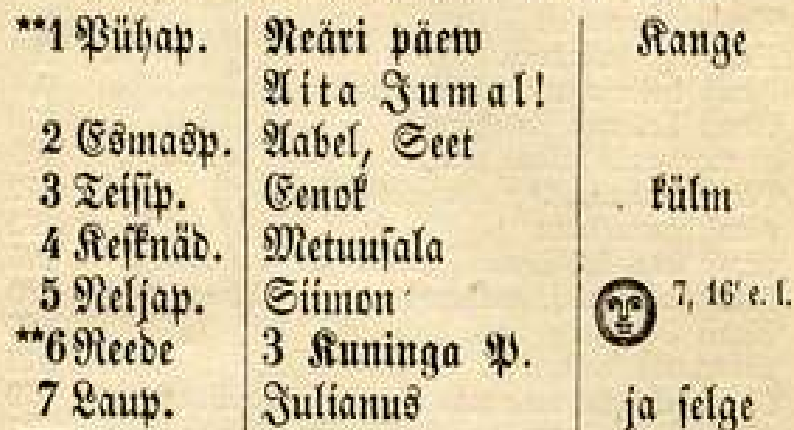 **1 Pühap. Neäri päew Kange
Aita Jumal!
2 Esmasp. Aabel, Seet
3 Teisip. Eenok külm
4 Kesknäd. Metuusala
5 Neljap. Siimon 7, 16' e. l.
**6 Reede 3 Kuninga P.
7 Laup. Julianus ja selge